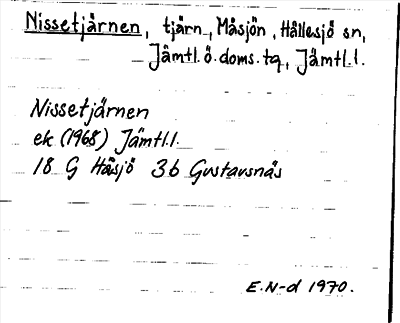 Nissetjärnen, tjärn, Måsjön, Hällesjö sn,
Jämtl.ö.doms.tg, Jämtl.l.
Nissetjärnen
ek (1968) Jämtl.l.
18 G Håsjö 3b Gustavsnäs
E.N-d 1970.